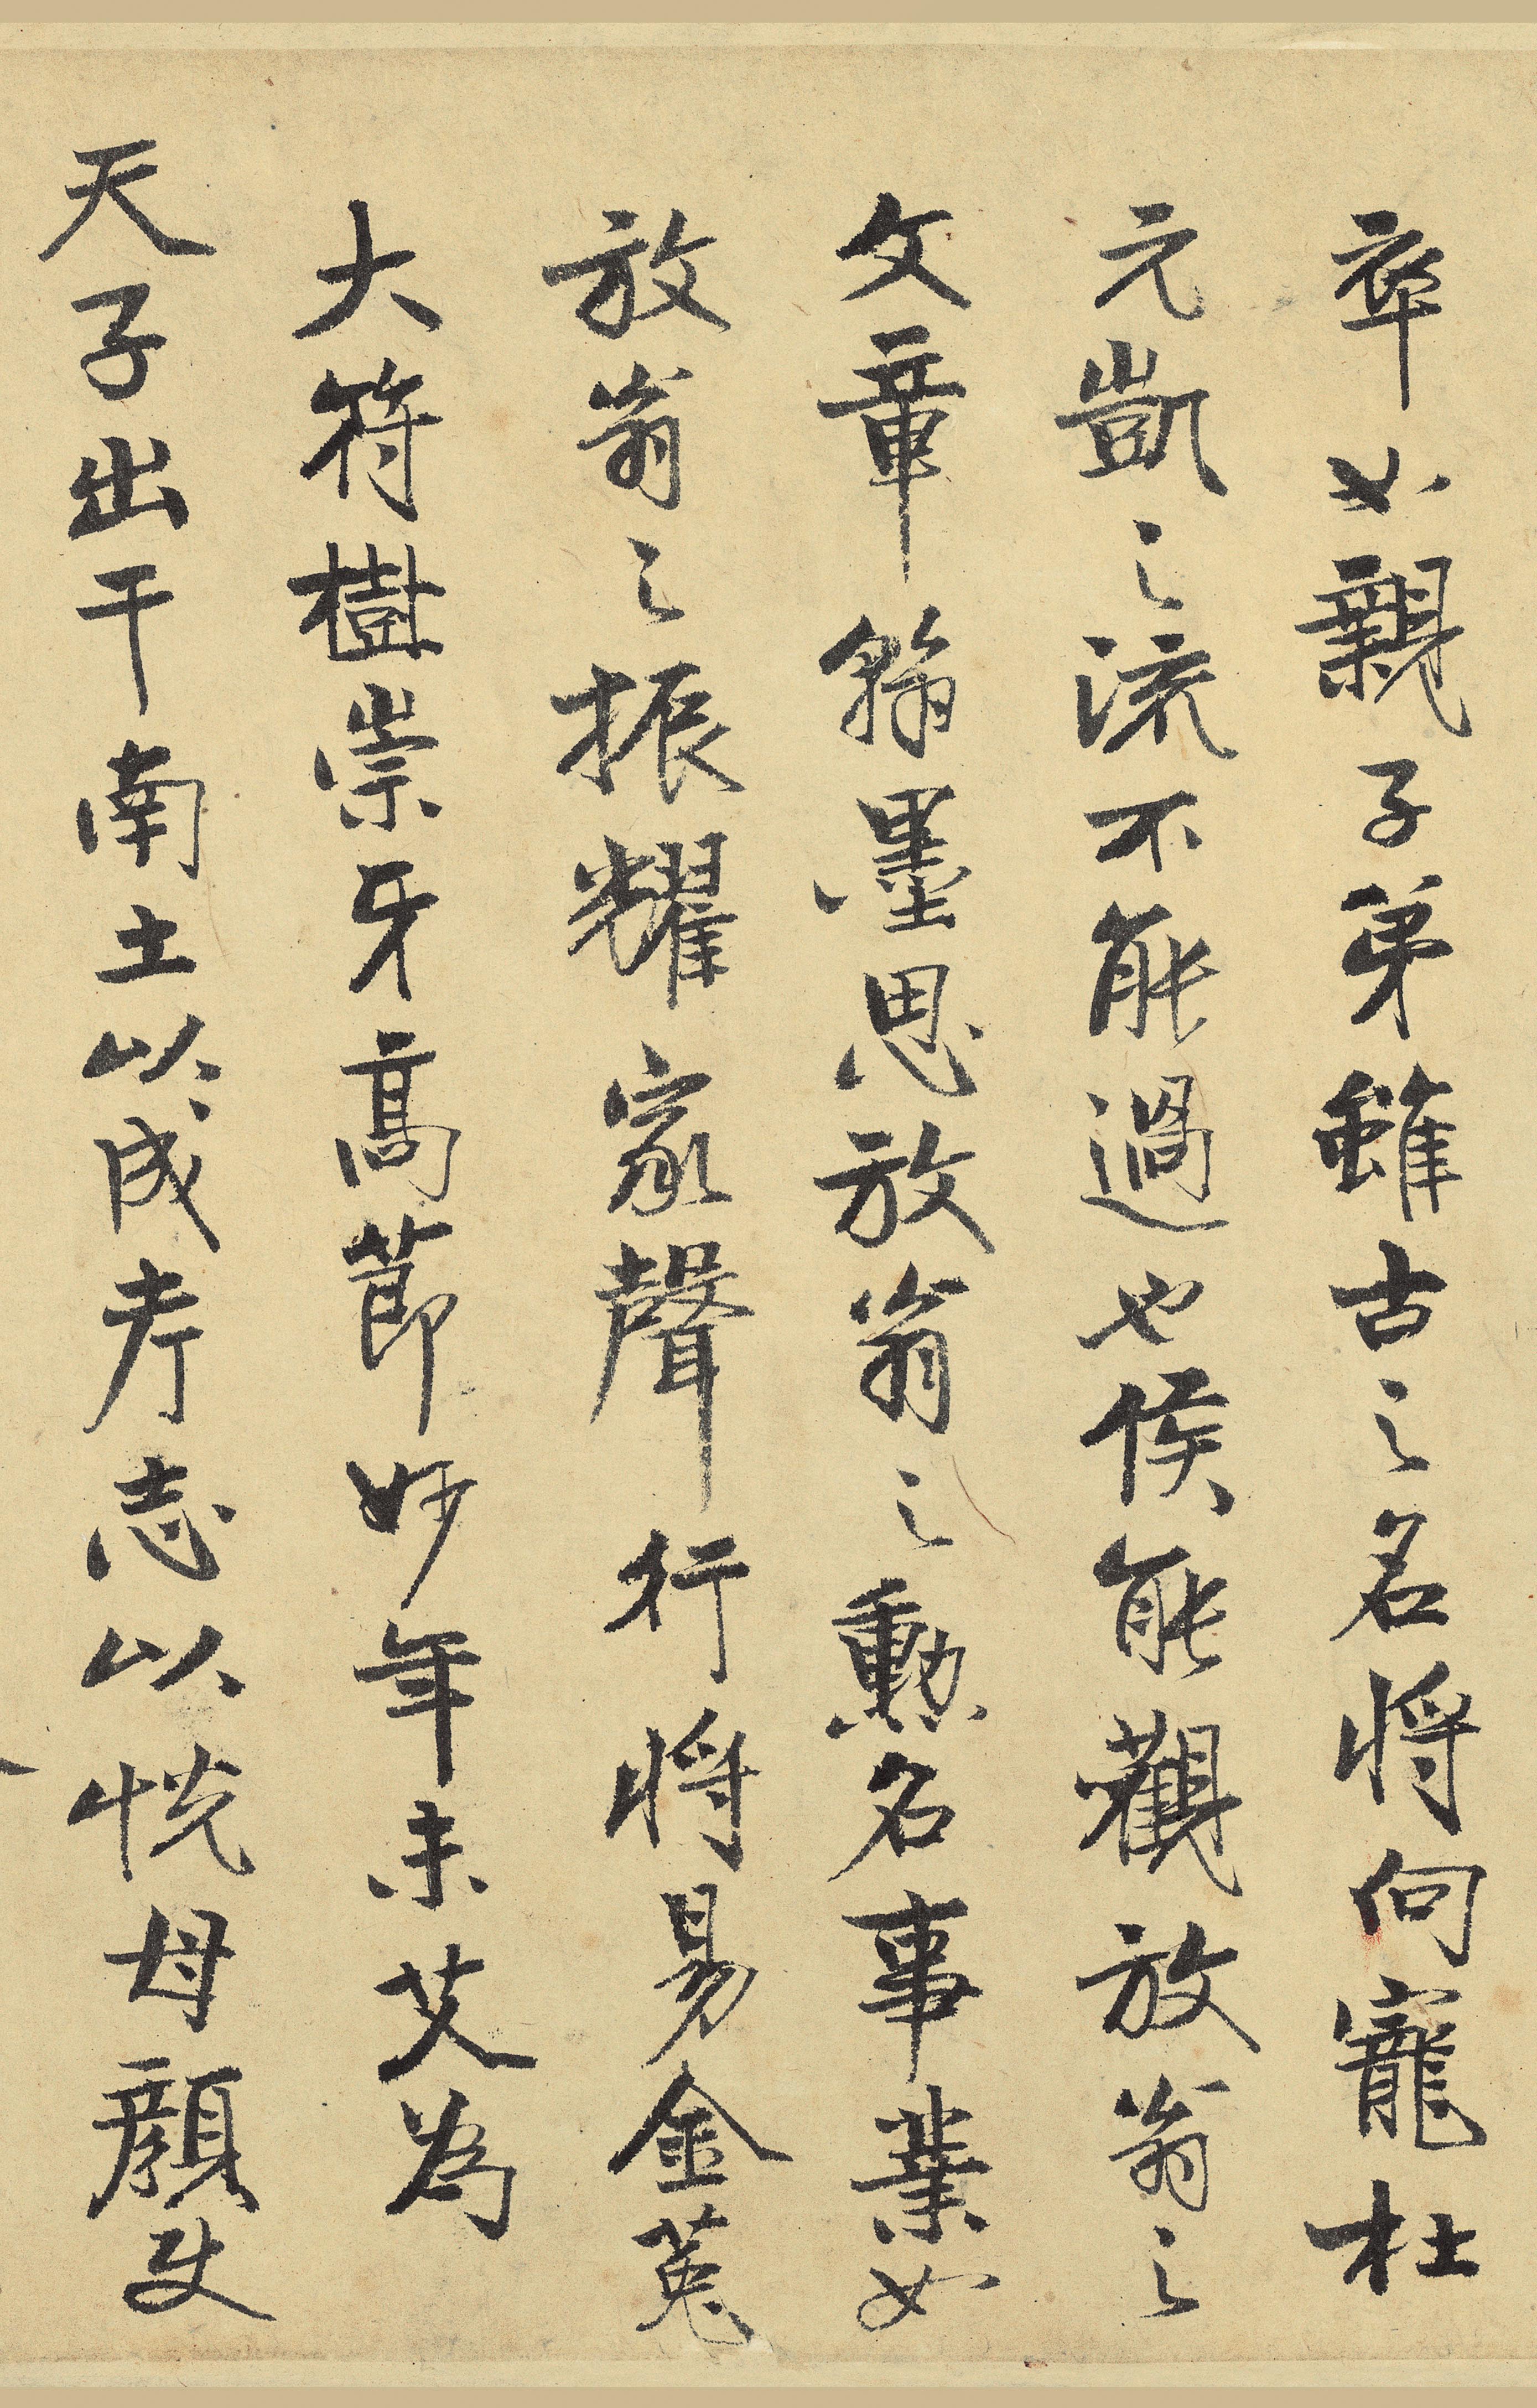 卒如親子弟雖古之名將向寵杜
元凱之流不能過也侯能觀放翁之
文章翰墨思放翁之勳名事業如
放翁之振耀家聲行將易金菟
大符樹崇牙高節妙年未艾為
天子出干南土以成孝志以悅母顏史